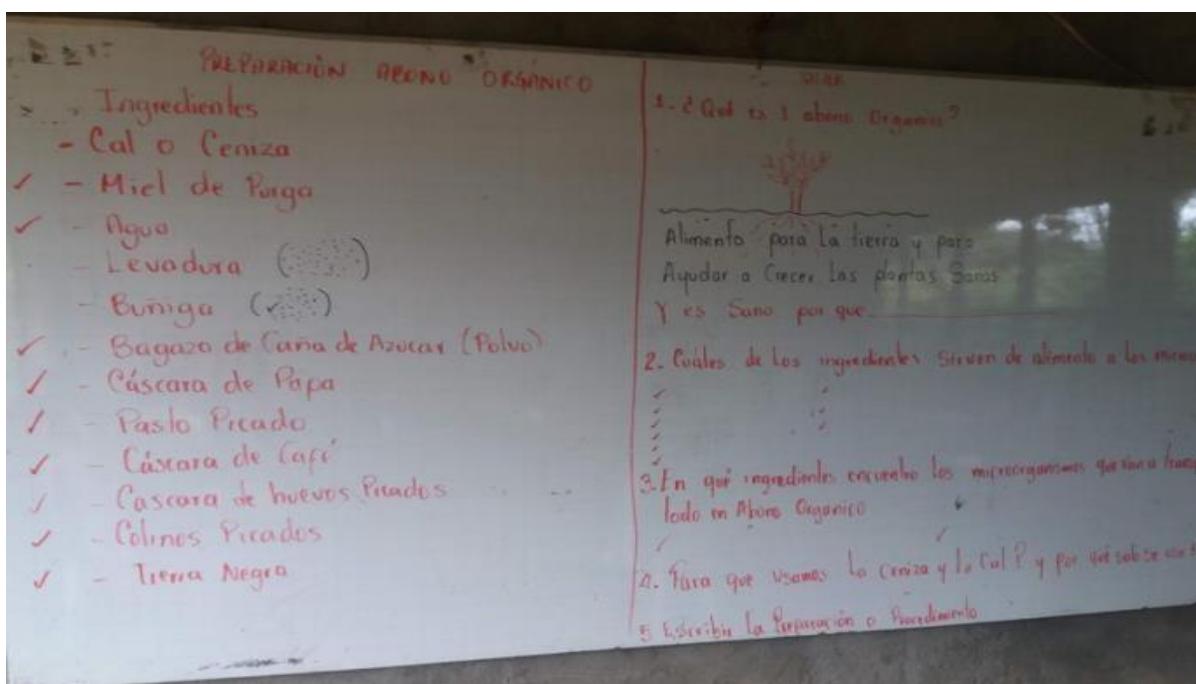 PREPARACIÓN ABONO ORGÁNICO
Ingredientes
- Cal o Ceniza
✓ - Miel de Purga
✓ - Agua
- Levadura
- Buñiga (✓)
✓ - Bagazo de Caña de Azucar (Polvo)
✓ - Cáscara de Papa
✓ - Pasto Picado
✓ - Cáscara de Café
✓ - Cascara de huevos Picados
✓ - Colinos Picados
✓ - Tierra Negra
1. ¿Qué es 1 abono Organico?
Alimento para La tierra y para
Ayudar a Crecer Las plantas Sanas
Y es Sano por que
2. Cuáles de Los ingredientes Sirven de alimento a los
3. En qué ingredientes encuentro los microorganismos que van a
todo en Abono Organico
4. Para que usamos la Ceniza y la Cal? y por qué solo se
5 Escribir La Preparación o Procedimiento